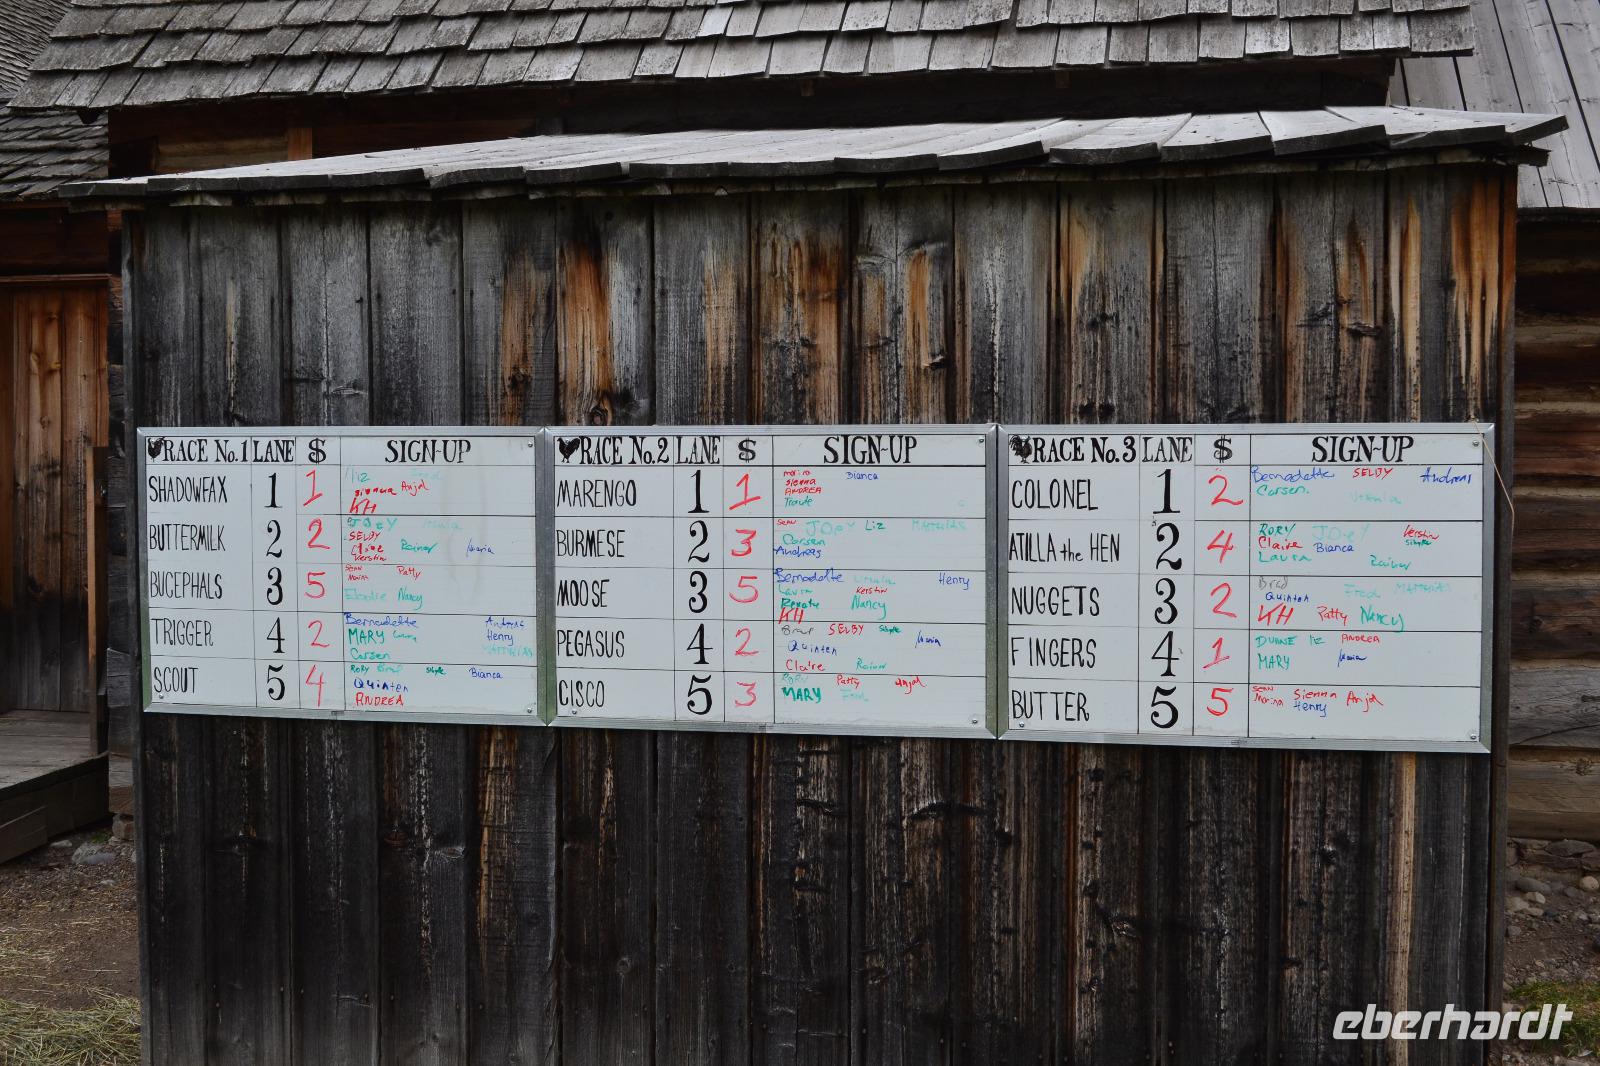 RACE No.1 LANE $ SIGN-UP
SHADOWFAX 1 1 Liz Fred
Sienna Anjol
KH
BUTTERMILK 2 2 JOEY Ursula
SELBY
Claire Rainer Maria
Kerstin
BUCEPHALS 3 5 SEAN Patty
Marina
Elodie Nancy
TRIGGER 4 2 Bernadette Andreas
MARY Laura Henry
Carsen MATTHIAS
SCOUT 5 4 RORY Brad Bianca
Quinten
ANDREA
RACE No.2 LANE $ SIGN-UP
MARENGO 1 1 Marina Bianca
Sienna
ANDREA
BURMESE 2 3 SEAN JOEY Liz MATTHIAS
Carsen
Andreas
MOOSE 3 5 Bernadette Ursula Henry
Laura Kerstin
Renate Nancy
KH
PEGASUS 4 2 Brad SELBY Maria
Quinten
Claire Rainer
CISCO 5 3 RORY Patty Anjol
MARY Fred
RACE No.3 LANE $ SIGN-UP
COLONEL 1 2 Bernadette SELBY Andreas
Carsen Ursula
ATILLA the HEN 2 4 RORY JOEY Kerstin
Claire Bianca
Laura Rainer
NUGGETS 3 2 Brad Fred MATTHIAS
Quinten
KH Patty Nancy
FINGERS 4 1 DUANE Liz ANDREA
MARY Maria
BUTTER 5 5 SEAN Sienna Anjol
Marina Henry
eberhardt